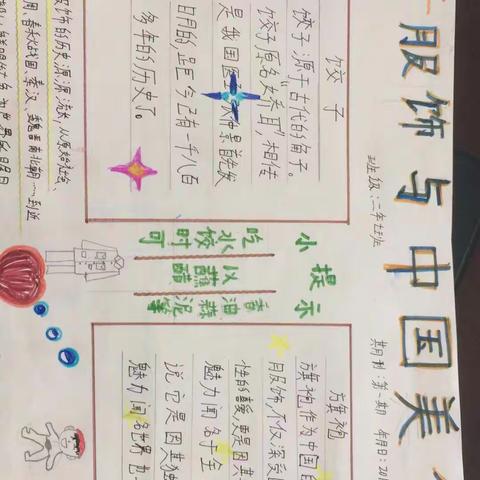 服饰与中国美
班级:二年
期刊:第一期 年月日:201
饺子
饺子:源于古代的角子。
饺子原名"娇耳",相传
是我国医 仲景首先发
明的,距今已有一千八百
多年的历史了。
服饰的历史源源流长,从原始社会、
周、春秋战国、秦汉、魏晋南北朝……到近
小提示
吃水饺时可
以蘸醋
香油蒜泥等
旗袍
旗袍作为中国
服饰,不仅深受
性的喜爱更是因其
魅力闻名于全
说它是因其独
魅力闻名世界